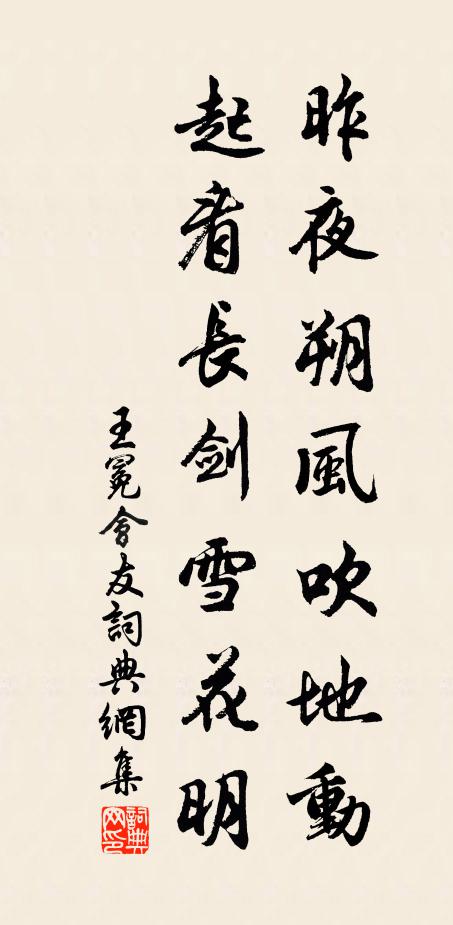 昨夜朔風吹地動
起看長劍雪花明
王冕會友詞典網集
詞典
网印